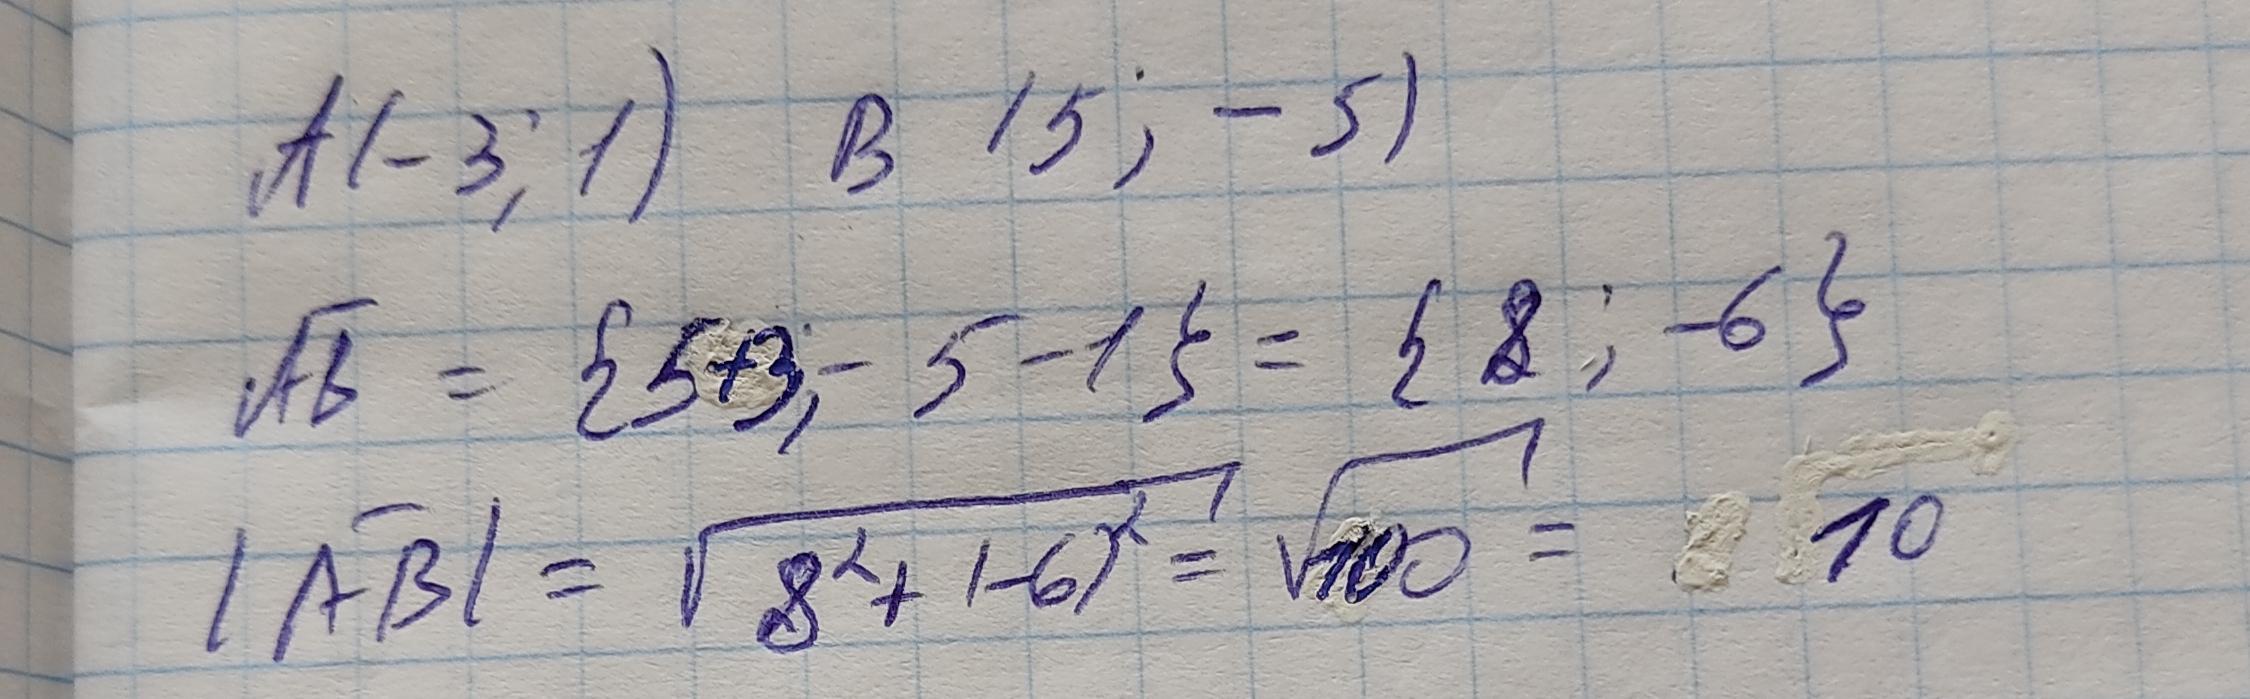 A(-3; 1) B (5; -5)
AB = {5+3; -5-1} = {8; -6}
|AB| = √(8²+(-6)²) = √100 = 10